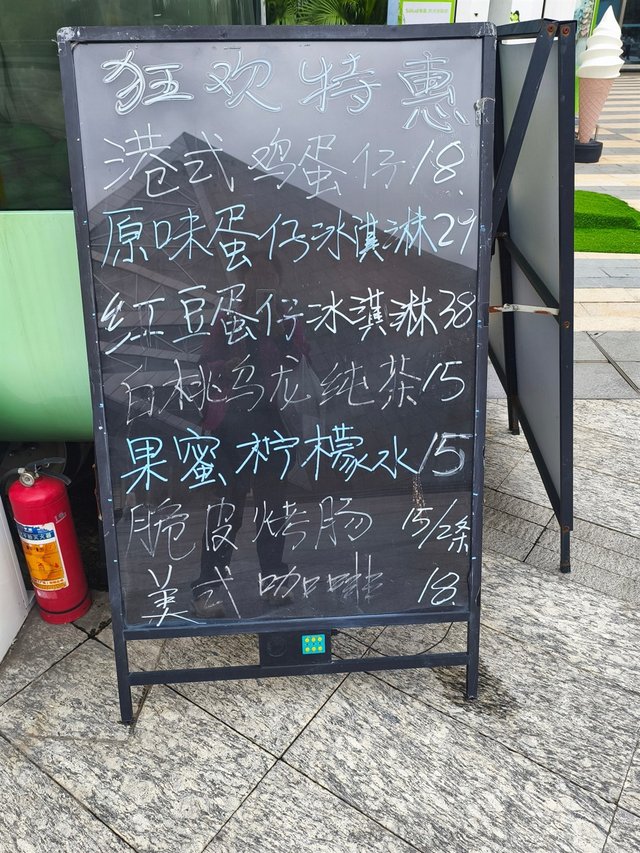 狂欢特惠
港式鸡蛋仔18
原味蛋仔冰淇淋29
红豆蛋仔冰淇淋38
白桃乌龙纯茶15
果蜜柠檬水15
脆皮烤肠 15/2条
美式咖啡 18